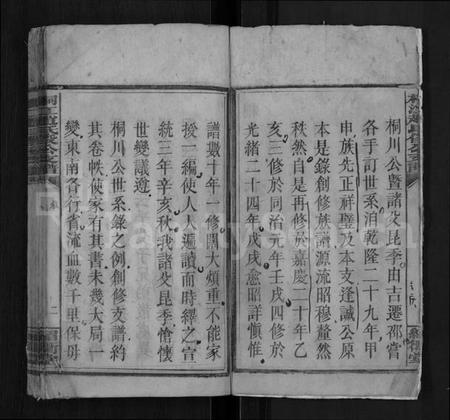 桐川公暨諸父昆季由吉遷邵嘗
各手訂世系洎乾隆二十九年甲
申族先正祥璧及本支逢誠公原
本是錄創修族譜源流昭穆釐然
秩然自是再修於嘉慶二十年乙
亥三修於同治元年壬戌四修於
光緒二十四年戊戌愈昭詳慎惟
譜數十年一修閎大煩重不能家
一編使人人遍讀而時繹之宣
統三年辛亥秋我諸父昆季愴懷
世變議遵
桐川公世系錄之例創修支譜約
其卷帙使家有其書未幾大局一
變東南各行省流血數千里保毋